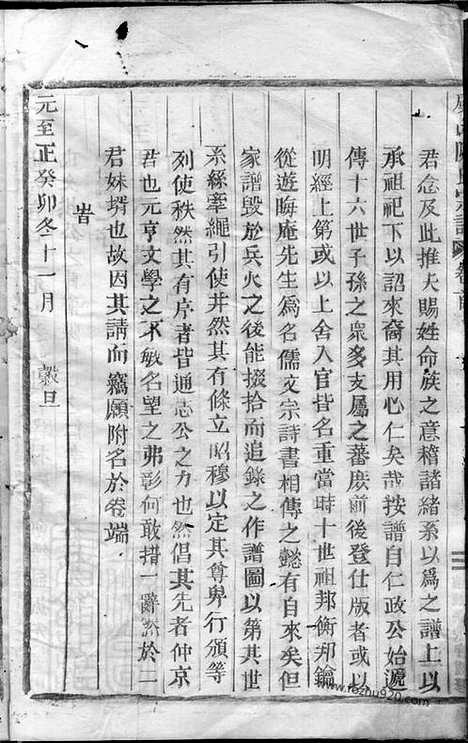 君念及此推大賜姓命族之意稽諸緒系以爲之譜上以
承祖祀下以詔來裔其用心仁矣哉按譜自仁政公始遞
傳十六世子孫之衆多支屬之蕃庶前後登仕版者或以
明經上第或以上舍入官皆名重當時十世祖邦衡邦鑰
從遊晦庵先生爲名儒文宗詩書相傳之懿有自來矣但
家譜毀於兵火之後能掇拾而追錄之作譜圖以第其世
系絲牽繩引使井然其有條立昭穆以定其尊卑行頒等
列使秩然其有序者皆通志公之力也然倡其先者仲京
君也元亨文學之不敏名望之弗彰何敢措一辭然於二
君妹壻也故因其請而竊願附名於卷端
旹
元至正癸卯冬十一月 穀旦
www.rezhu920.com